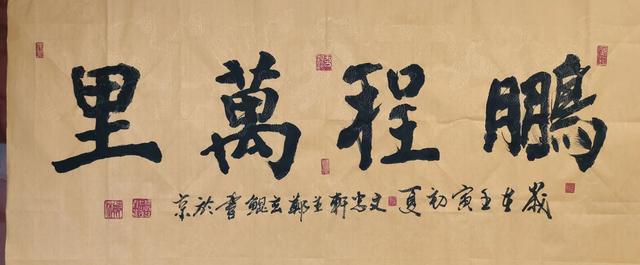 鵬程萬里
歲在壬寅初夏文忠軒主鄭玄鯤書於京